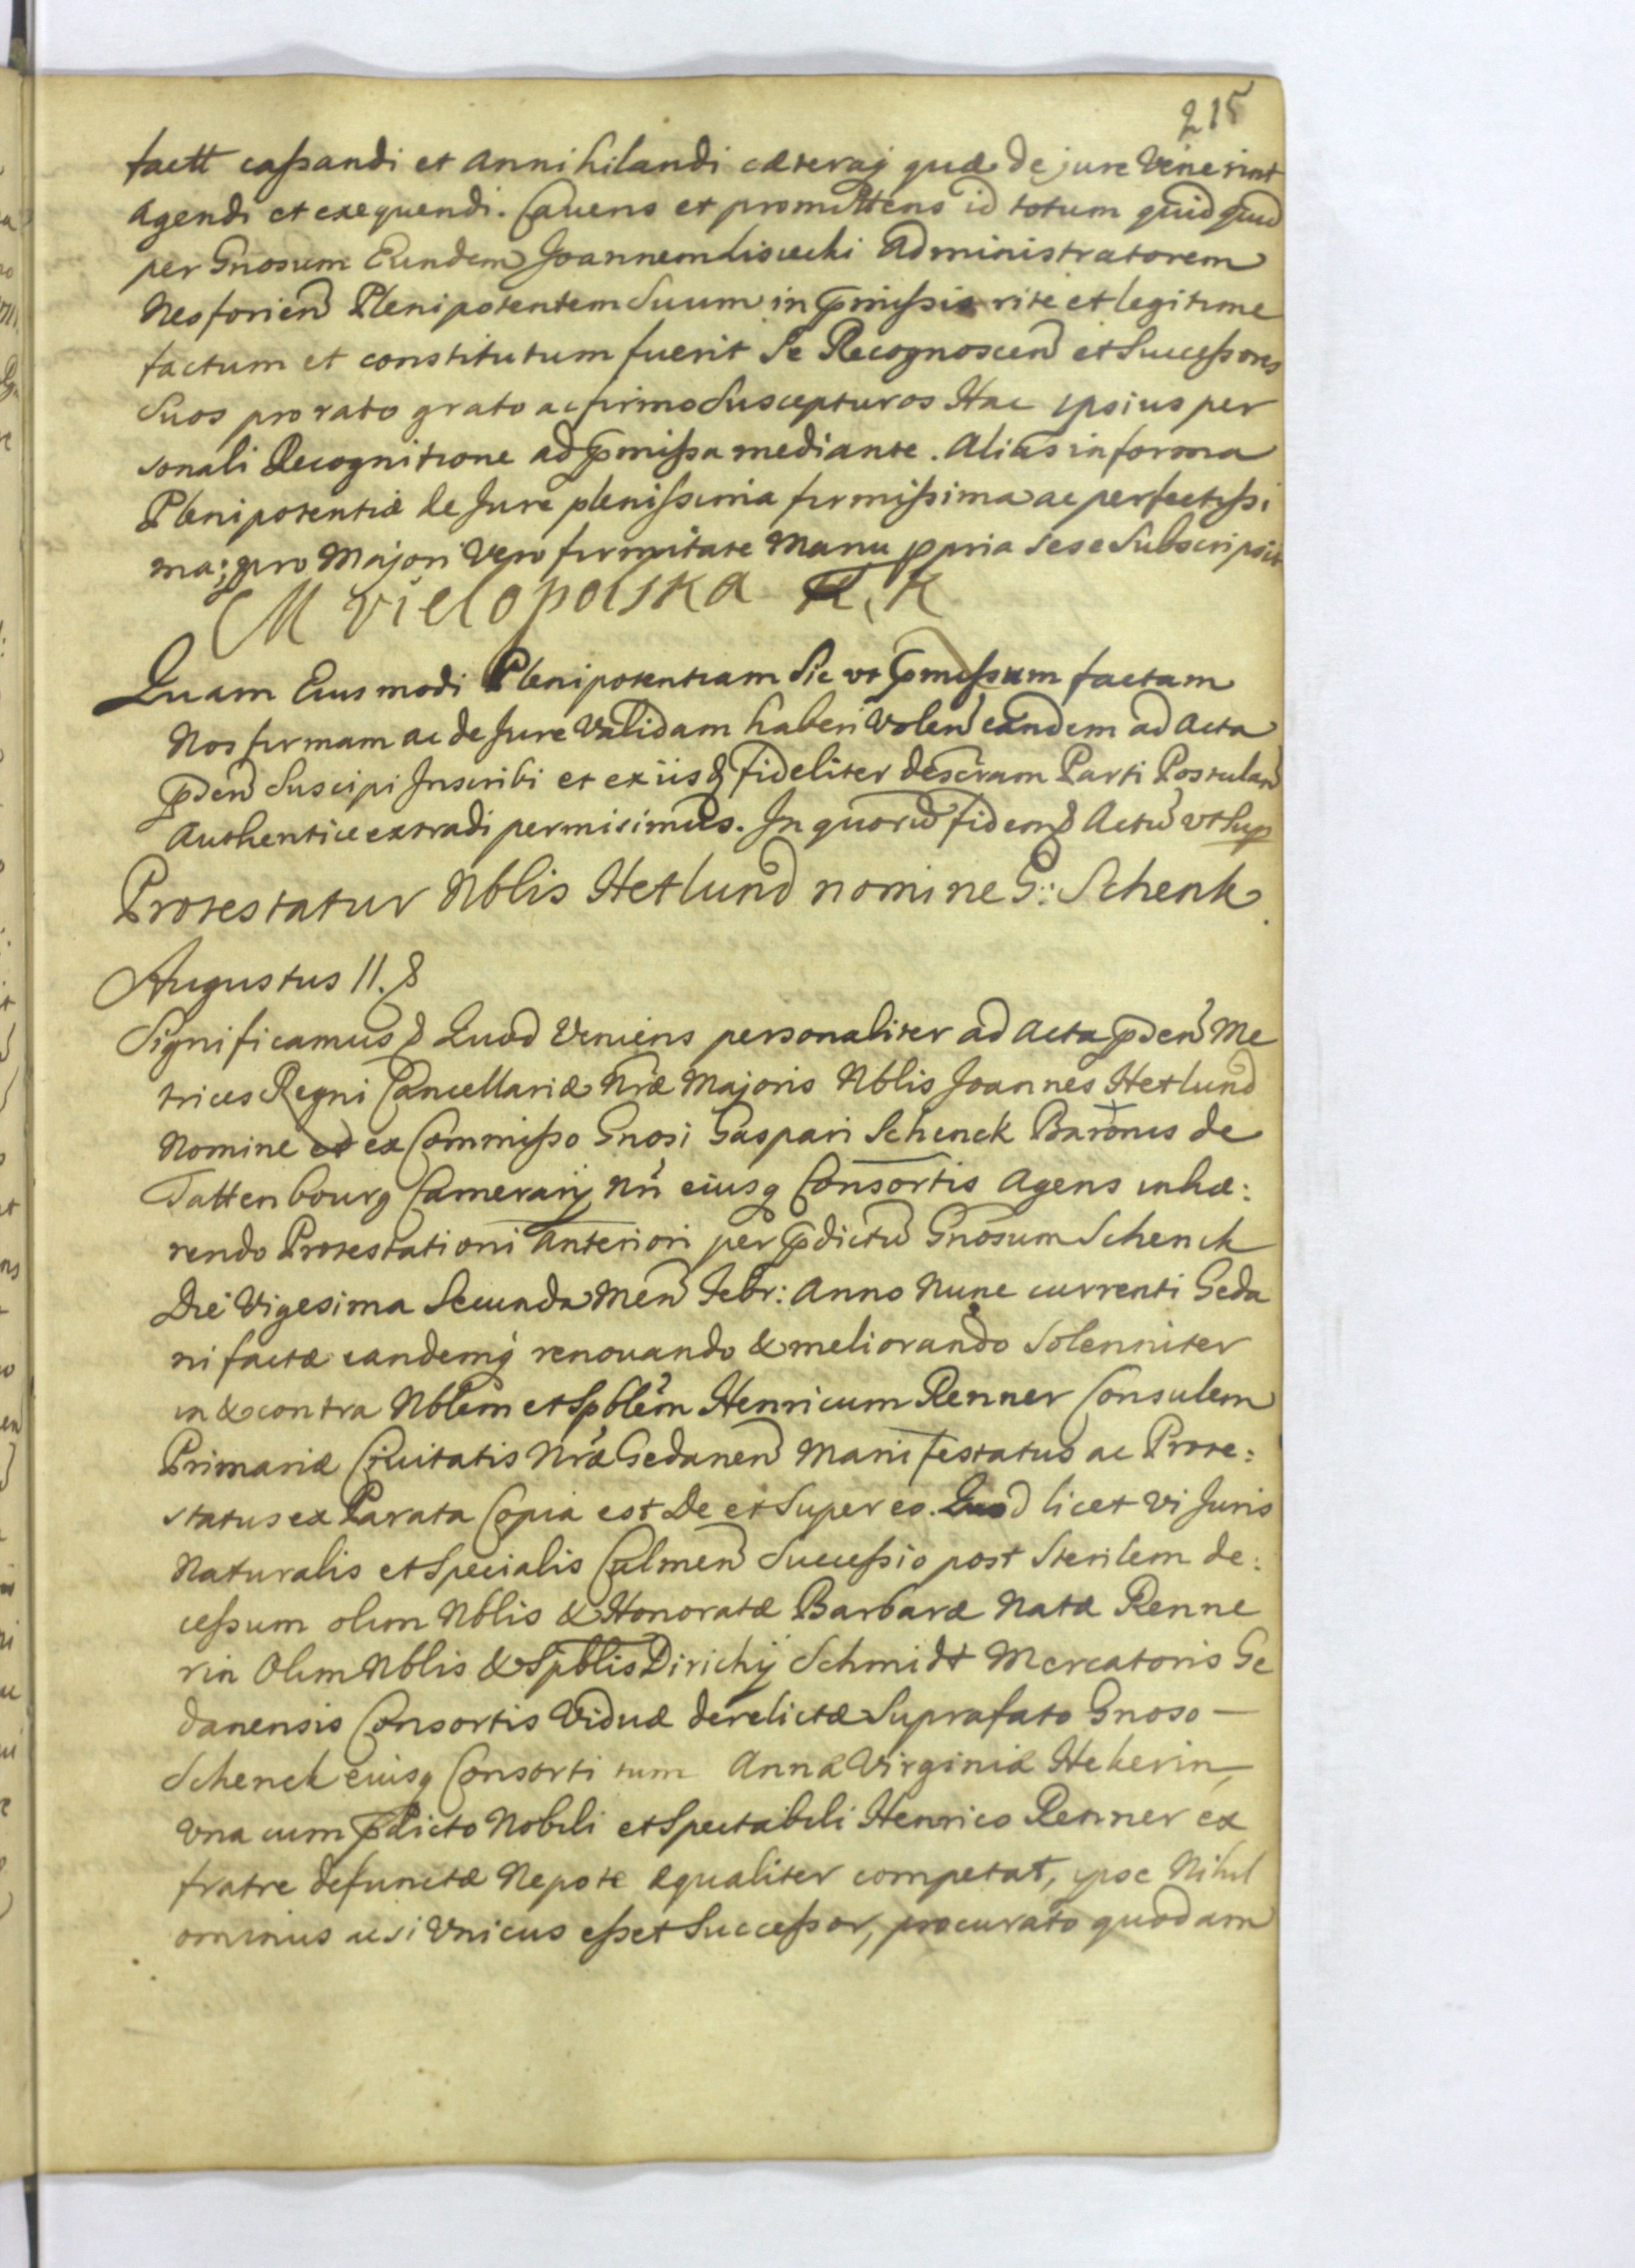 215
factt cassandi et annihilandi cæteraq quæ de jure Venerint
Agendi et exequendi. Cavens et promittens id totum quidquid
per Gnosum Eundem Joannem Lisiecki Administratorem
Nesforien Plenipotentem Suum in pmissis rite et legitime
factum et constitutum fuerit Se Recognoscen et Successores
Suos pro rato grato ac firmo Suscepturos Hac ipsius per
sonali Recognitione ad pmissa mediante. Alias in forma
Plenipotentiæ de Jure plenissima firmissima ac perfectissi
ma; pro Majori Vero firmitate Manu ppria Sese Subscripsit
M Vielopolska K. K
Quam Eiusmodi Plenipotentiam Sic vt pmissum factam
Nos firmam ac de Jure Validam haberi Volen eandem ad Acta
pden Suscipi Inscribi et ex iisd fideliter descriptam Parti Postulan
Authentice extradi permisimus. In quoru fidem & Actu vt Sup
Protestatur Nblis Hetlund nomine G: Schenk
Augustus II. &
Significamus & Quod Veniens personaliter ad Acta pden Me
trices Regni Cancellariæ Nræ Majoris Nblis Joannes Hetlund
Nomine et ex Commisso Gnosi Gaspari Schenck Baronis de
Tattenbourg Camerarij Nri eiusq Consortis Agens inhæ:
rendo Protestationi Anteriori per pdictu Gnosum Schenck
Die Vigesima Secunda Men Febr: Anno Nunc currenti Geda
ni factæ eandemq renouando & meliorando Solenniter
in & contra Nblem et Spblem Henricum Renner Consulem
Primariæ Ciuitatis Nræ Gedanen Manifestatus ac Prote:
status ex Parata Copia est De et Super eo. Quod licet Vi Juris
Naturalis et Specialis Culmen Successio post Sterilem de:
cessum olim Nblis & Honoratæ Barbaræ Natæ Renne
rin Olim Nblis & Spblis Dirichij Schmidt Mercatoris Ge
danensis Consortis Viduæ derelictæ Suprafato Gnoso –
Schenck eiusq Consorti tum Annæ Virginiæ Hekerin,
Vna cum pdicto Nobili et Spectabili Henrico Renner ex
fratre defunctæ Nepote æqualiter competat, ipse Nihil
ominus ac si Vnicus esset Successor, procurato quodam